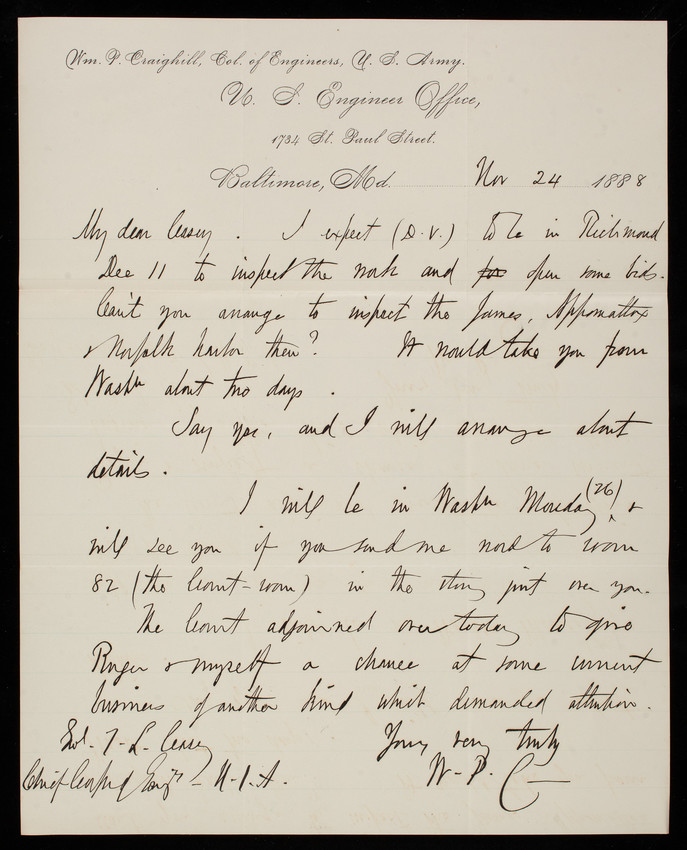 Wm. P. Craighill, Col. of Engineers, U. S. Army.
U. S. Engineer Office,
1734 St. Paul Street.
Baltimore, Md. Nov 24 1888
My dear Casey. I expect (D.V.) to be in Richmond
Dec 11 to inspect the work and for open some bids.
Can't you arrange to inspect the James, Appomattox
& Norfolk harbor then? It would take you from
Washn about two days.
Say yes, and I will arrange about
details.
I will be in Washn Monday (26) &
will see you if you send me word to room
82 (the Court-room) in the story just over you.
The Court adjourned over today to give
Ruger & myself a chance at some current
business of another kind which demanded attention.
Yours very truly
W. P. C
Col. T. L. Casey
Chief Corps of Engrs - U.S.A.